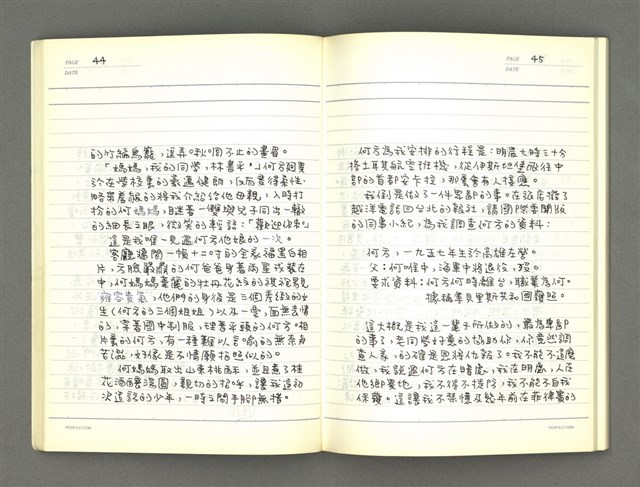 PAGE 44
DATE
的竹編鳥籠，逗弄啾啁不止的畫眉。
「媽媽，我的同學，林書平。」何方迥異
於在學校裏的豪邁健朗，反而變得柔性
略帶羞赧的將我介紹給他母親，入時打
扮的何媽媽，瞇著一雙與兒子同出一轍
的細長之眼，微笑的輕語：「歡迎你來」
這是我唯一見過何方他娘的一次。
客廳牆間一幀十二吋的全家福黑白相
片，方臉嚴肅的何爸爸身著海軍戎裝在
中，何媽媽臺麗的牡丹花紋的旗袍顯見
雍容貴氣，他們的身後是三個秀緻的女
生（何方的三個姐姐）以及一旁，面無表情
的，穿著國中制服，理著平頭的何方。相
片裏的何方，有一種難以言喻的無奈與
苦澀，好像是不情願拍照似的。
何媽媽取出山東桃酥，並且煮了桂
花酒釀湯圓，親切的招呼，讓我這初
次造訪的少年，一時之間手腳無措。
PERFECTION
PAGE 45
DATE
何方為我安排的行程是：明晨七時三十分
搭土耳其航空班機，從伊斯坦堡飛往中
部的首都安卡拉，那裏會有人接應。
我倒是做了一件窩囊的事。在旅店撥了
越洋電話回台北的報社，請國際要聞版
的同事小紀，為我調查何方的資料：
何方，一九五七年生於高雄左營。
父：何唯中，海軍中將退役，歿。
要求資料：何方何時離台，職業為何。
據稱拿貝里斯共和國護照。
這大概是我這一輩子所做的，最為卑鄙
的事了，老同學好意的協助你，你竟然調
查人家，的確是恩將仇報了。我不能不這麼
做，我說過何方在暗處，我在明處，人在
他鄉異地，我不得不提防，我不能不自我
保護。這讓我不禁憶及幾年前在菲律賓的
PERFECTION